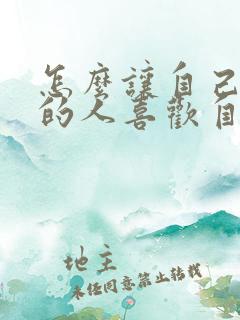 怎麼讓自己
的人喜歡自
地主
未经同意禁止转载